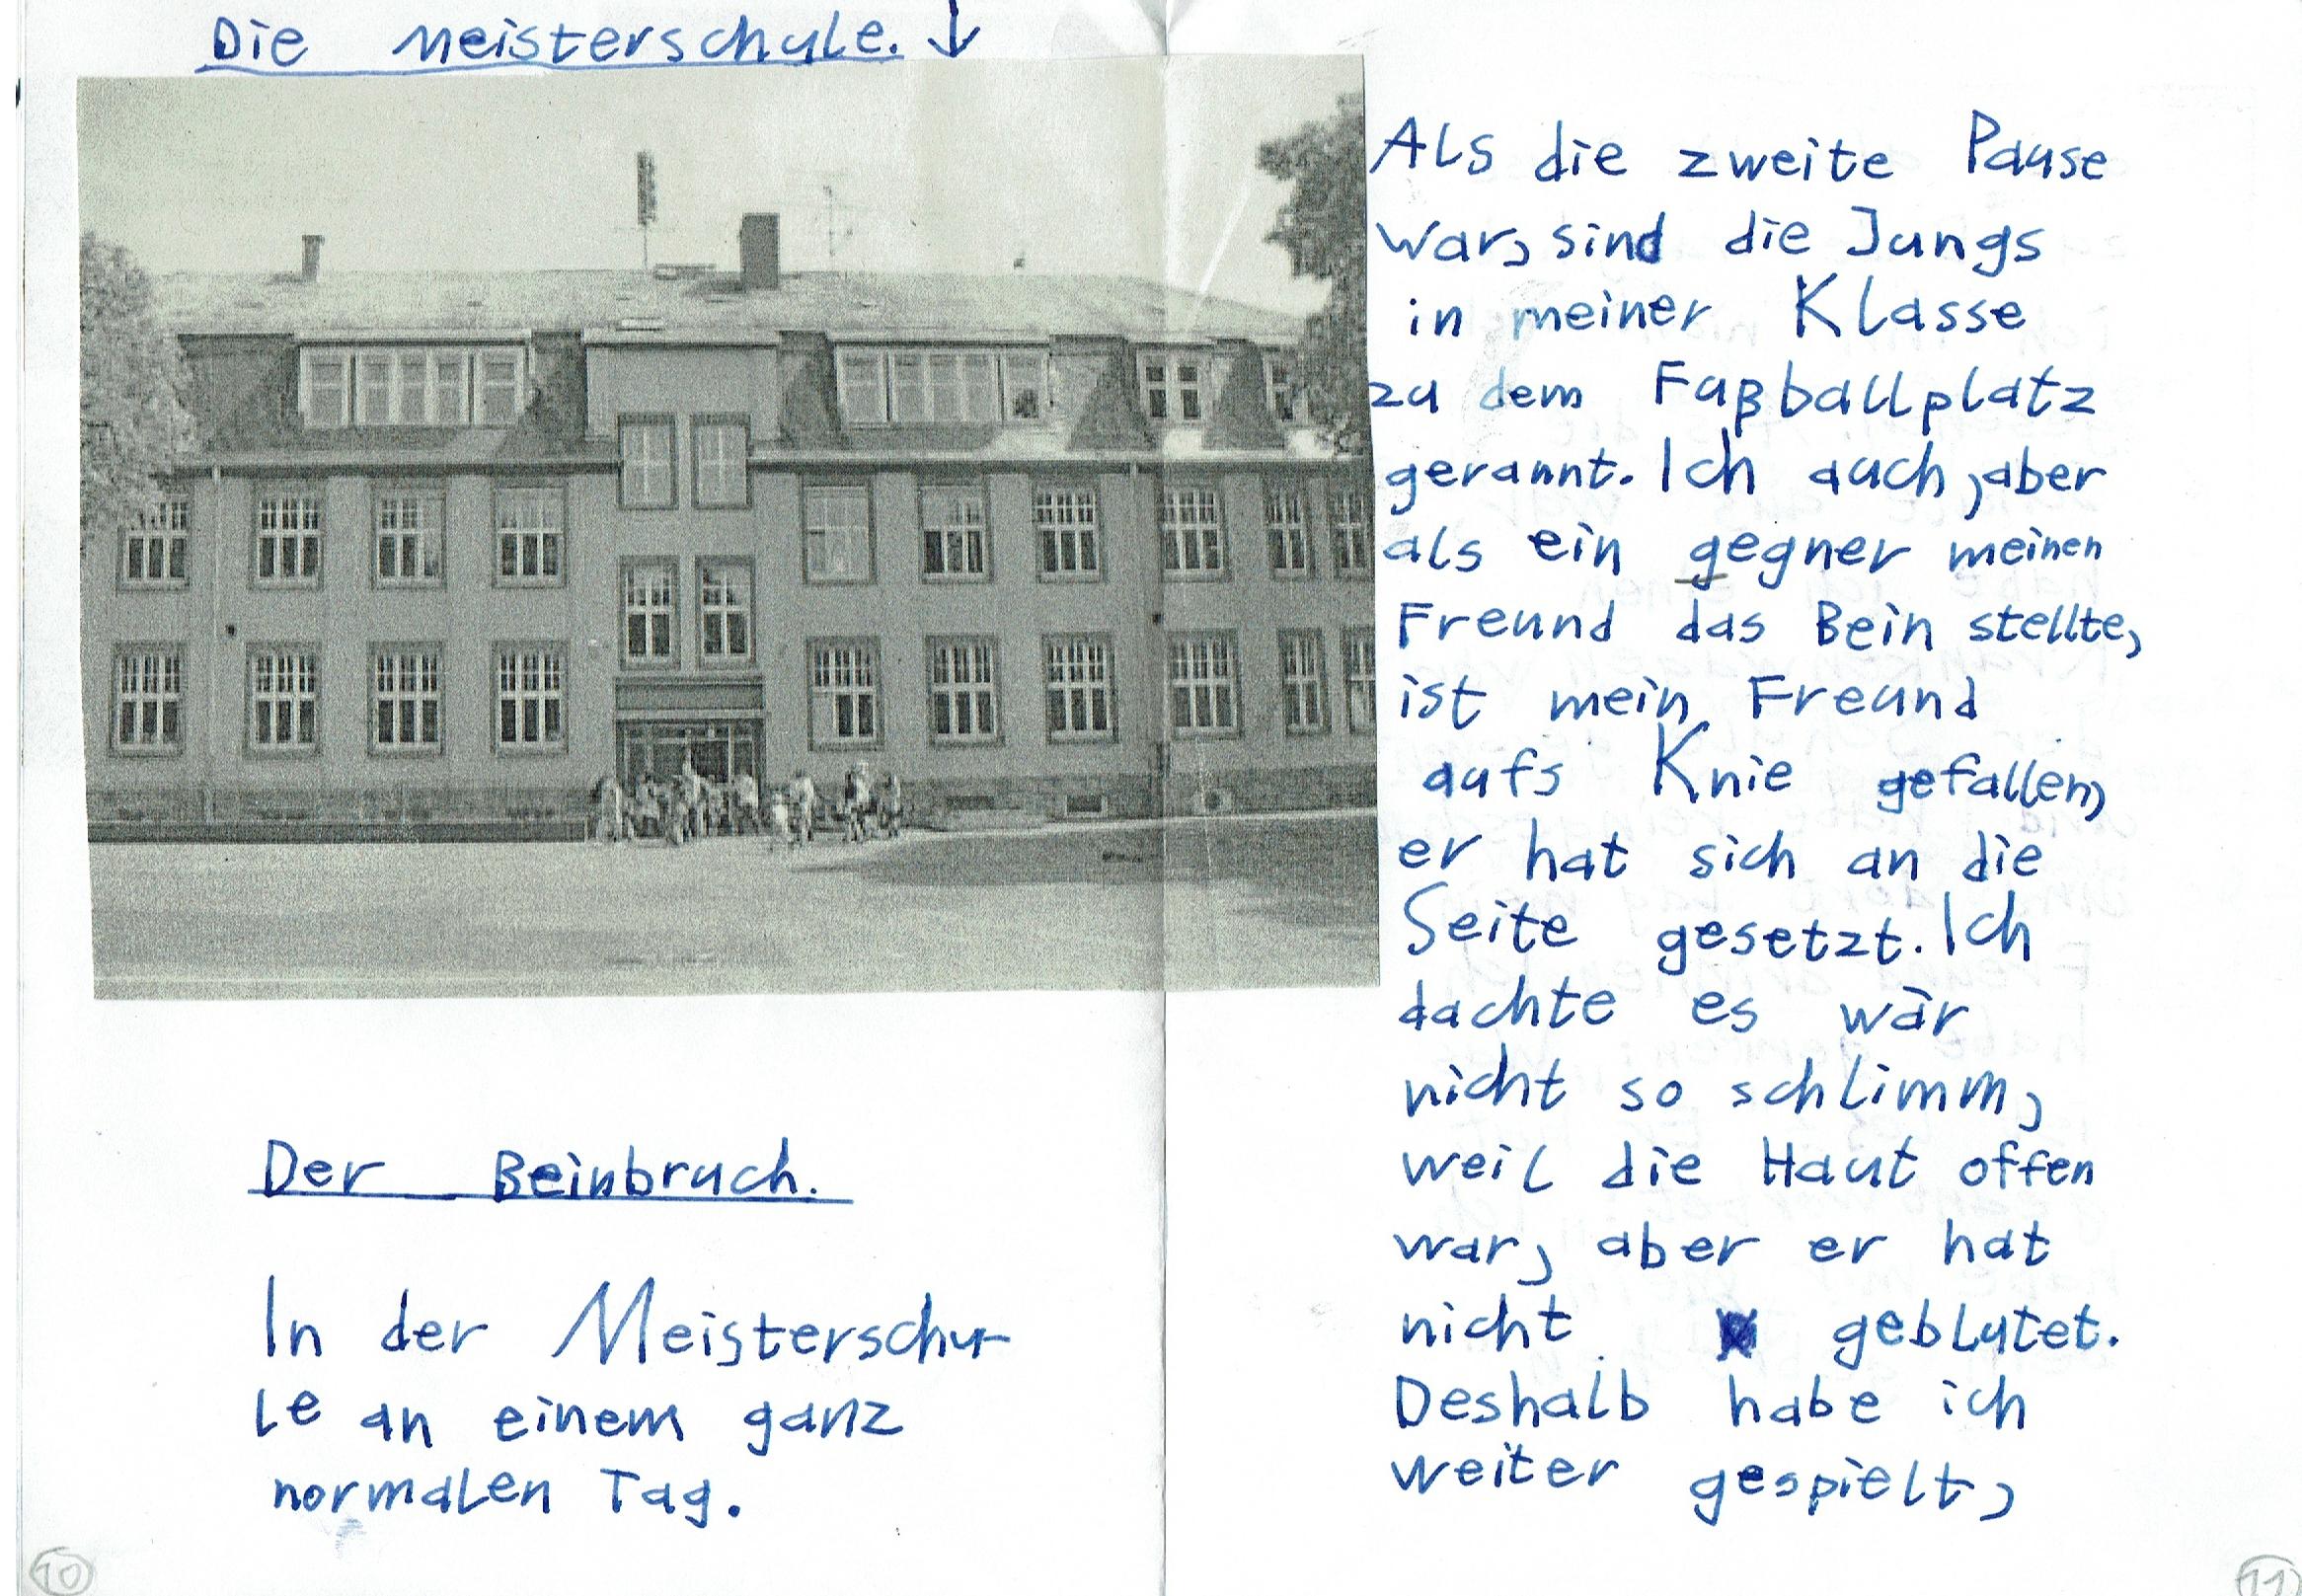 Die Meisterschule. ↓
Der Beinbruch.
In der Meisterschu-
le an einem ganz
normalen Tag.
10
Als die zweite Pause
war, sind die Jungs
in meiner Klasse
zu dem Fußballplatz
gerannt. Ich auch, aber
als ein gegner meinen
Freund das Bein stellte,
ist mein Freund
aufs Knie gefallen,
er hat sich an die
Seite gesetzt. Ich
dachte es wär
nicht so schlimm,
weil die Haut offen
war, aber er hat
nicht geblutet.
Deshalb habe ich
weiter gespielt,
11